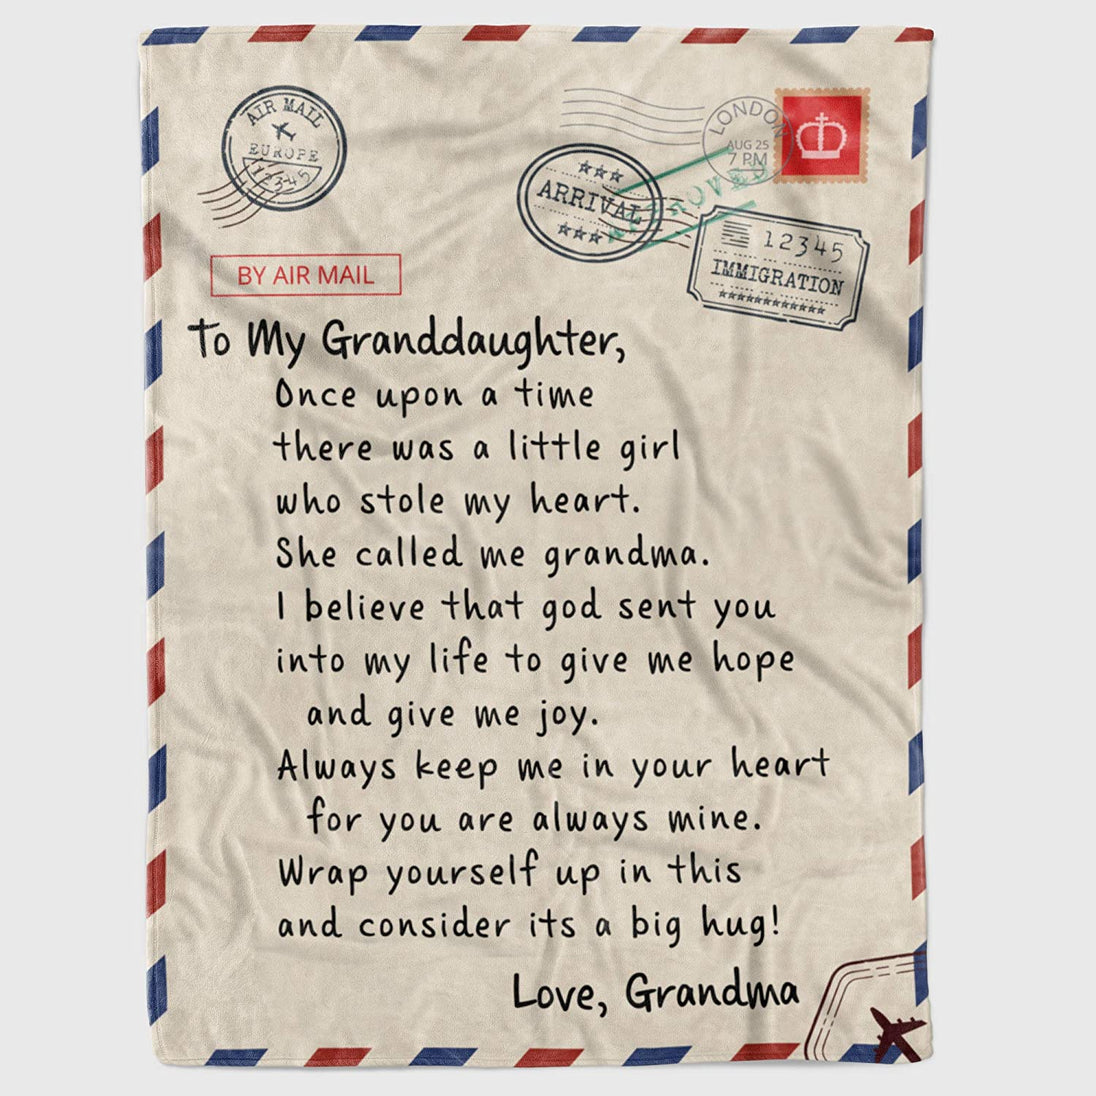 AIR MAIL
EUROPE
12345
LONDON
AUG 25
7 PM
ARRIVAL
APPROVED
12345
IMMIGRATION
BY AIR MAIL
To My Granddaughter,
Once upon a time
there was a little girl
who stole my heart.
She called me grandma.
I believe that god sent you
into my life to give me hope
and give me joy.
Always keep me in your heart
for you are always mine.
Wrap yourself up in this
and consider its a big hug!
Love, Grandma